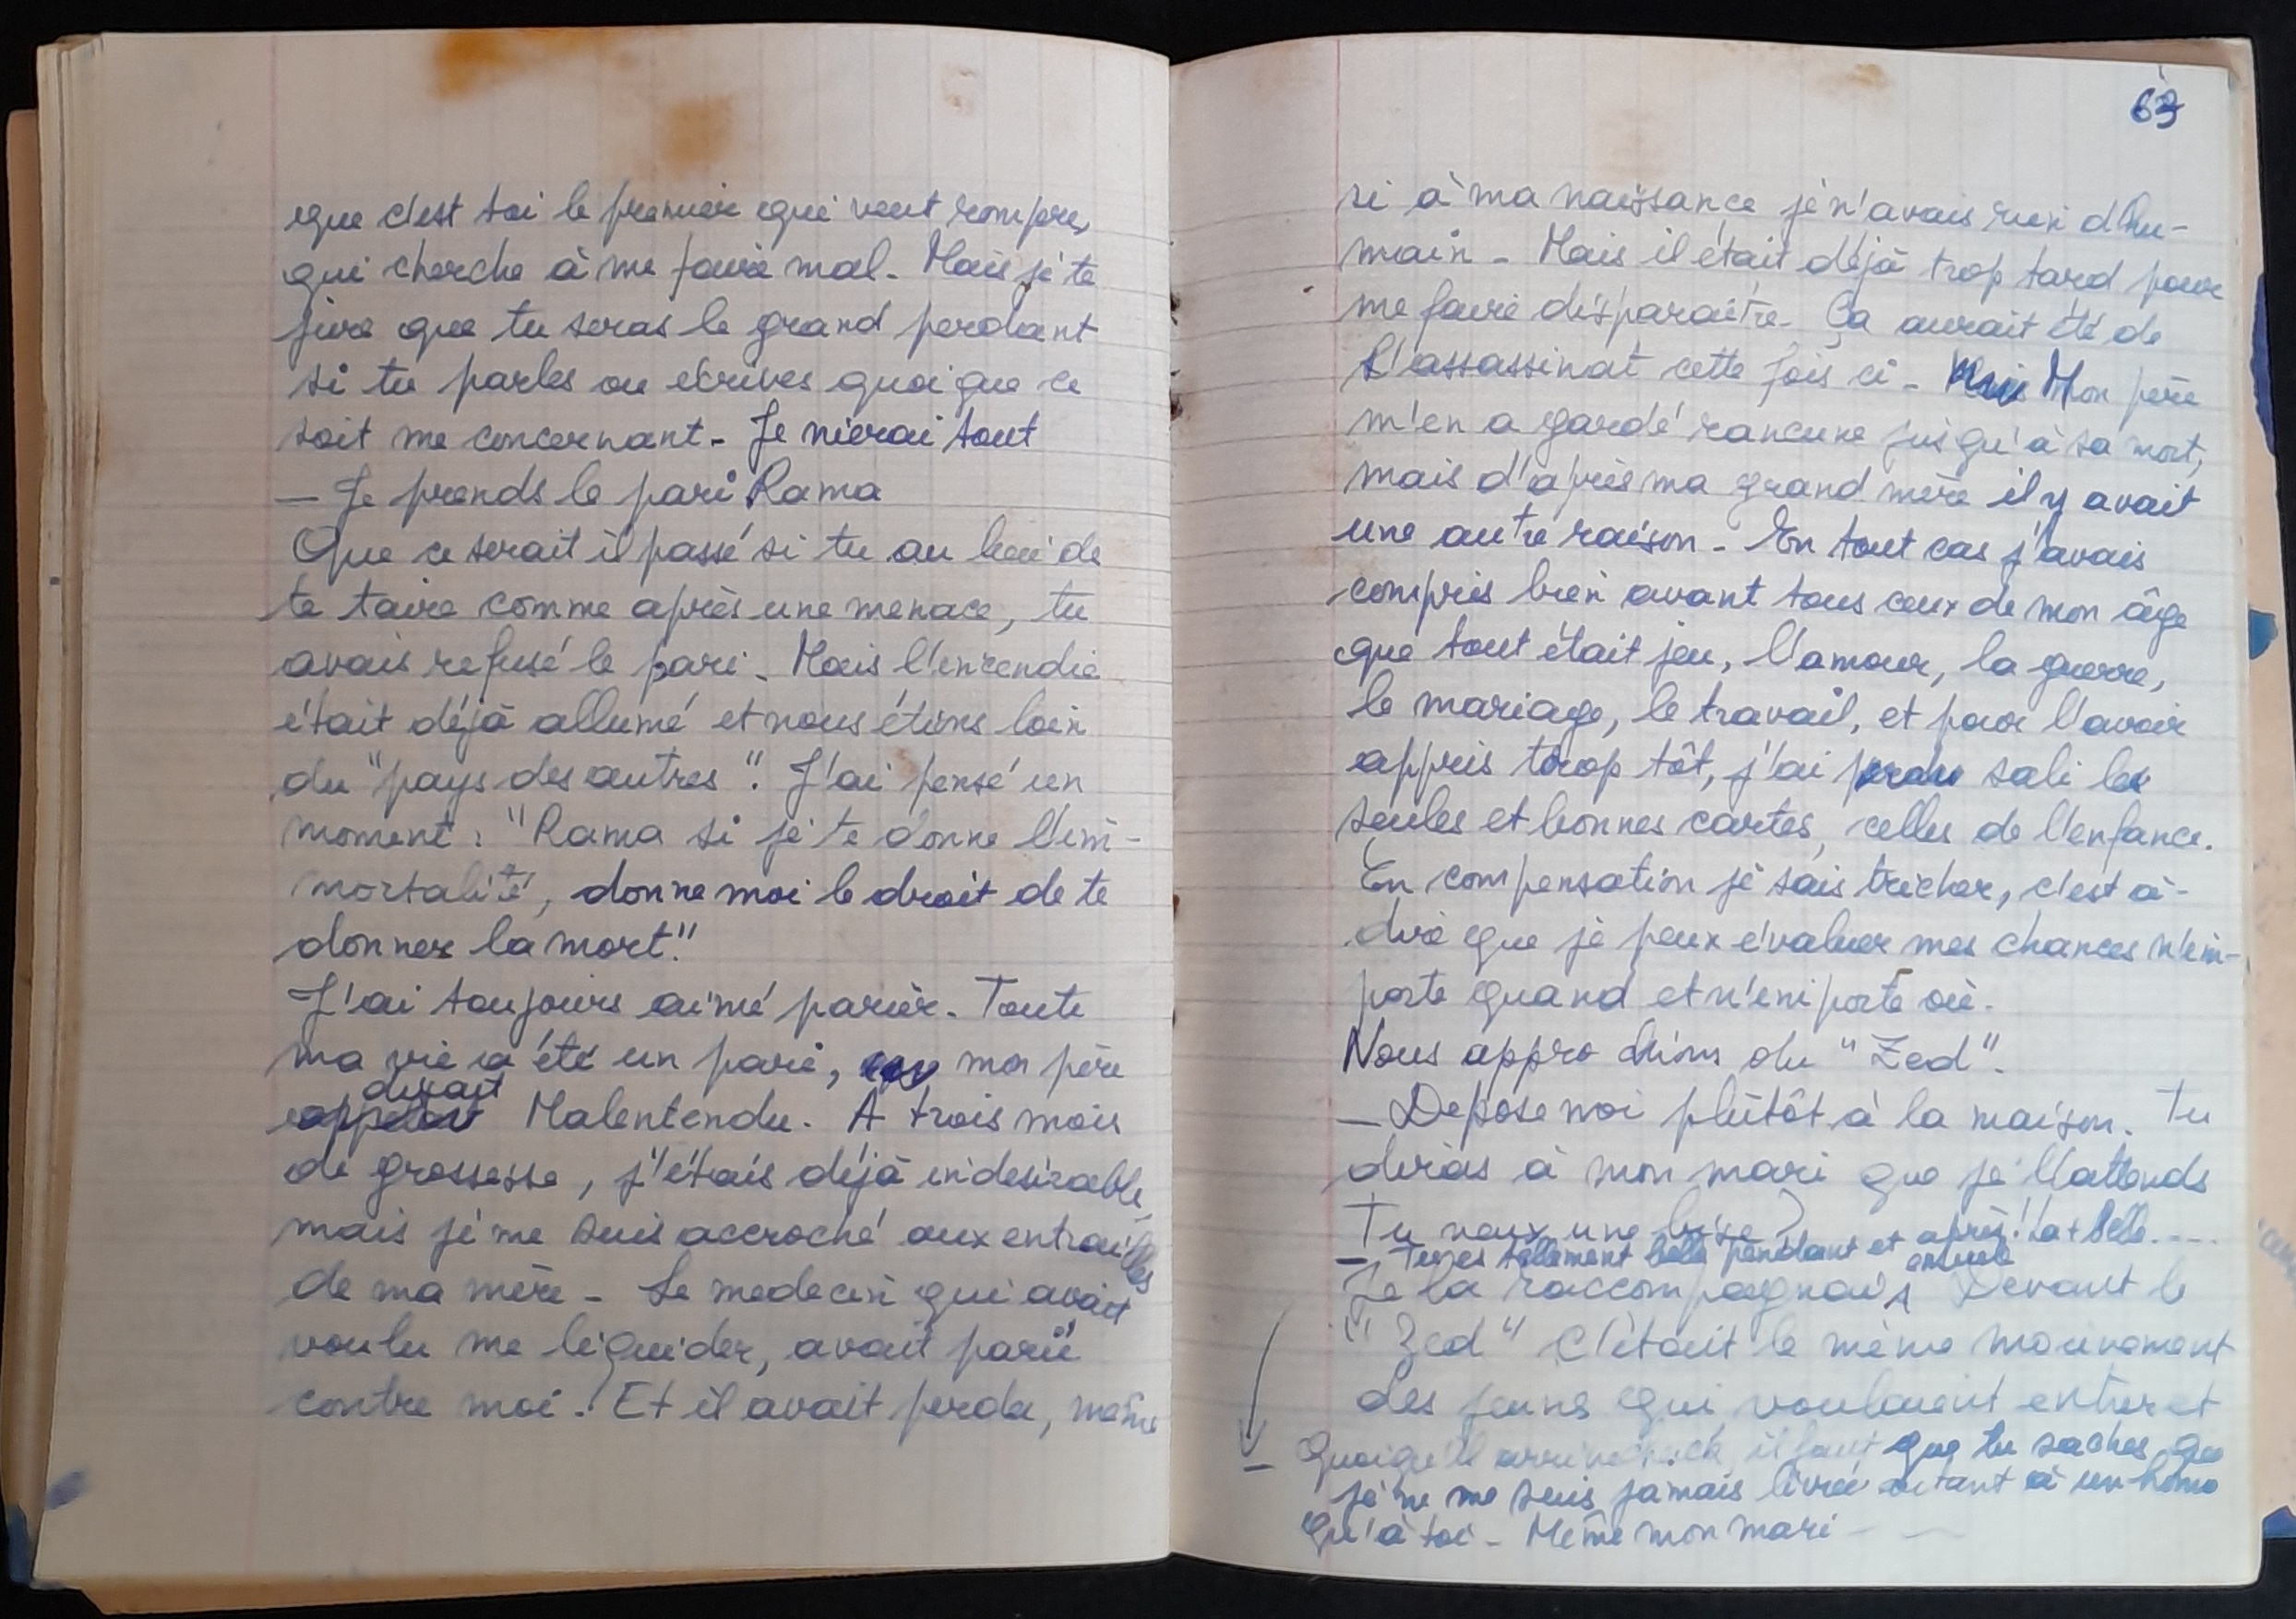 que c'est toi le premier qui veut rompre,
qui cherche à me faire mal. Mais je te
jure que tu seras le grand perdant
si tu parles ou écrives quoi que ce
soit me concernant. Je nierai tout
— Je prends le pari Rama
Que ce serait il passé si tu au lieu de
te taire comme après une menace, tu
avais refusé le pari. Mais l'incendie
était déjà allumé et nous étions loin
du "pays des autres". J'ai pensé un
moment : "Rama si je te donne l'im-
mortalité, donne moi le droit de te
donner la mort"
J'ai toujours aimé parier. Toute
ma vie a été un pari, mon père
disait
Malentendu. A trois mois
de grossesse, j'étais déjà indesirable,
mais je me suis accroché aux entrailles
de ma mère - Le medecin qui avait
voulu me liquider, avait parié
contre moi ! Et il avait perdu, même
63
si à ma naissance je n'avais rien d'hu-
main - Mais il était déjà trop tard pour
me faire disparaître. Ça aurait été de
l'assassinat cette fois ci - Mon père
m'en a gardé rancune jusqu'à sa mort,
mais d'après ma grand mère il y avait
une autre raison - En tout cas j'avais
compris bien avant tous ceux de mon âge
que tout était jeu, l'amour, la guerre,
le mariage, le travail, et pour l'avoir
appris trop tôt, j'ai sali les
seules et bonnes cartes, celles de l'enfance.
En compensation je sais tricher, c'est à-
dire que je peux évaluer mes chances n'im-
porte quand et n'importe où.
Nous approchions du "Zed".
— Depose moi plutôt à la maison. Tu
diras à mon mari que je l'attends
Tu veux une bise ?
— Tu es tellement belle pendant et après ! La + belle....
Je la raccompagnais ensuite Devant le
"Zed" C'était le même mouvement
des jeunes qui voulaient entrer et
— Quoiqu'il arrive il faut que tu saches que
je ne me suis jamais livrée autant à un homme
qu'à toi - Même mon mari -